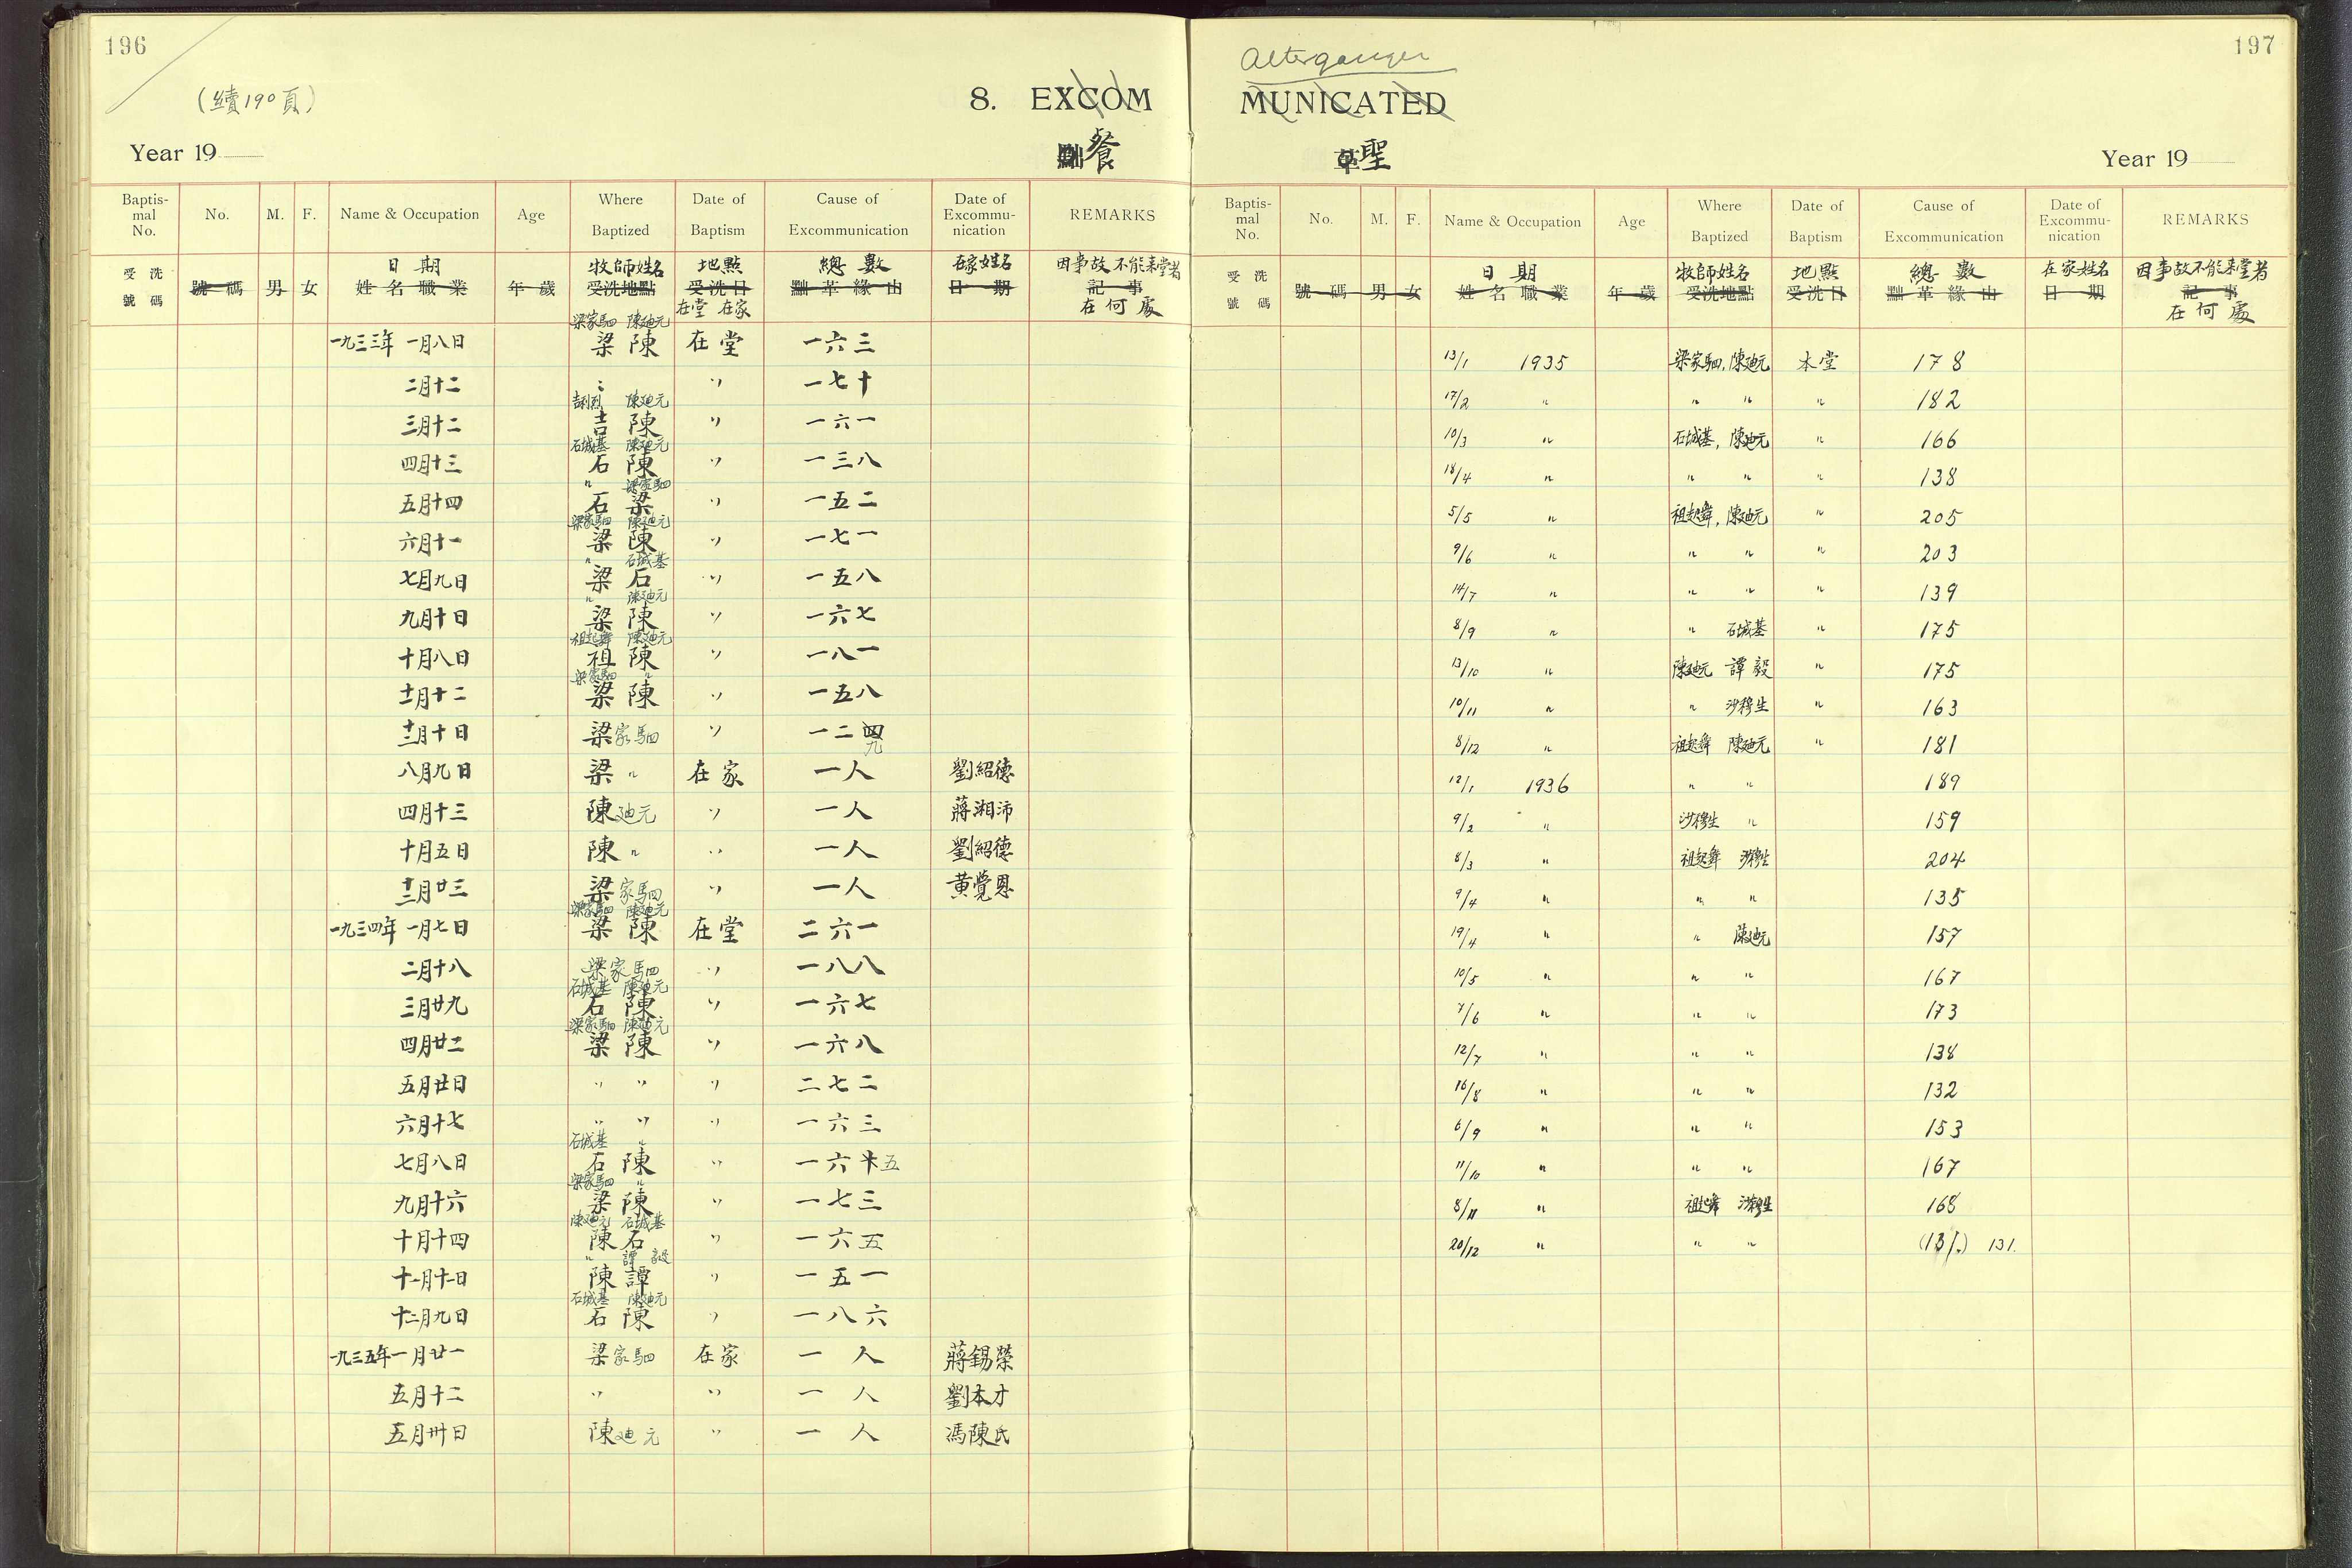 196
(續190頁)
8. EXCOM
Year 19
餐
Baptis-mal No. No. M. F. Name & Occupation Age Where Baptized Date of Baptism Cause of Excommunication Date of Excommu-nication REMARKS
日期 牧師姓名 地點 總數 在家姓名 因事故不能來堂者
受洗號碼 號碼 男 女 姓名職業 年歲 受洗地點 受洗日 黜革緣由 日期 記事
在堂 在家 在何處
梁家駟 陳廸元
一九三三年 一月八日 梁 陳 在堂 一六三
二月十二 〃 〃 一七十
吉利烈 陳廸元
三月十二 吉 陳 〃 一六一
石城基 陳廸元
四月十三 石 陳 〃 一三八
〃 梁家駟
五月十四 石 梁 〃 一五二
梁家駟 陳廸元
六月十一 梁 陳 〃 一七一
〃 石城基
七月九日 梁 石 〃 一五八
〃 陳廸元
九月十日 梁 陳 〃 一六七
祖起舞 陳廸元
十月八日 祖 陳 〃 一八一
梁家駟 〃
十一月十二 梁 陳 〃 一五八
十二月十日 梁家駟 〃 一二四九
八月九日 梁 〃 在家 一人 劉紹德
四月十三 陳廸元 〃 一人 蔣湘沛
十月五日 陳 〃 〃 一人 劉紹德
十二月廿三 梁家駟 〃 一人 黃覺恩
梁家駟 陳廸元
一九三四年 一月七日 梁 陳 在堂 二六一
二月十八 梁家駟 〃 一八八
石城基 陳廸元
三月廿九 石 陳 〃 一六七
梁家駟 陳廸元
四月廿二 梁 陳 〃 一六八
五月廿日 〃 〃 〃 二七二
六月十七 〃 〃 〃 一六三
石城基 〃
七月八日 石 陳 〃 一六五
梁家駟 〃
九月十六 梁 陳 〃 一七三
陳廸元 石城基
十月十四 陳 石 〃 一六五
〃 譚毅
十一月十一日 陳 譚 〃 一五一
石城基 陳廸元
十二月九日 石 陳 〃 一八六
一九三五年一月廿一 梁家駟 在家 一人 蔣錫榮
五月十二 〃 〃 一人 劉本才
五月卅日 陳廸元 〃 一人 馮陳氏
197
Altergänger
MUNICATED
革聖
Year 19
Baptis-mal No. No. M. F. Name & Occupation Age Where Baptized Date of Baptism Cause of Excommunication Date of Excommu-nication REMARKS
日期 牧師姓名 地點 總數 在家姓名 因事故不能來堂者
受洗號碼 號碼 男 女 姓名職業 年歲 受洗地點 受洗日 黜革緣由 日期 記事
在何處
13/1 1935 梁家駟, 陳廸元 本堂 178
17/2 〃 〃 〃 〃 182
10/3 〃 石城基, 陳廸元 〃 166
18/4 〃 〃 〃 〃 138
5/5 〃 祖起舞, 陳廸元 〃 205
9/6 〃 〃 〃 〃 203
14/7 〃 〃 〃 〃 139
8/9 〃 〃 石城基 〃 175
13/10 〃 陳廸元 譚毅 〃 175
10/11 〃 〃 沙穆生 〃 163
8/12 〃 祖起舞 陳廸元 〃 181
12/1 1936 〃 〃 189
9/2 〃 沙穆生 〃 159
8/3 〃 祖起舞 沙穆生 204
9/4 〃 〃 〃 135
19/4 〃 〃 陳廸元 157
10/5 〃 〃 〃 167
7/6 〃 〃 〃 173
12/7 〃 〃 〃 138
16/8 〃 〃 〃 132
6/9 〃 〃 〃 153
11/10 〃 〃 〃 167
8/11 〃 祖起舞 沙穆生 168
20/12 〃 〃 〃 (131.) 131.